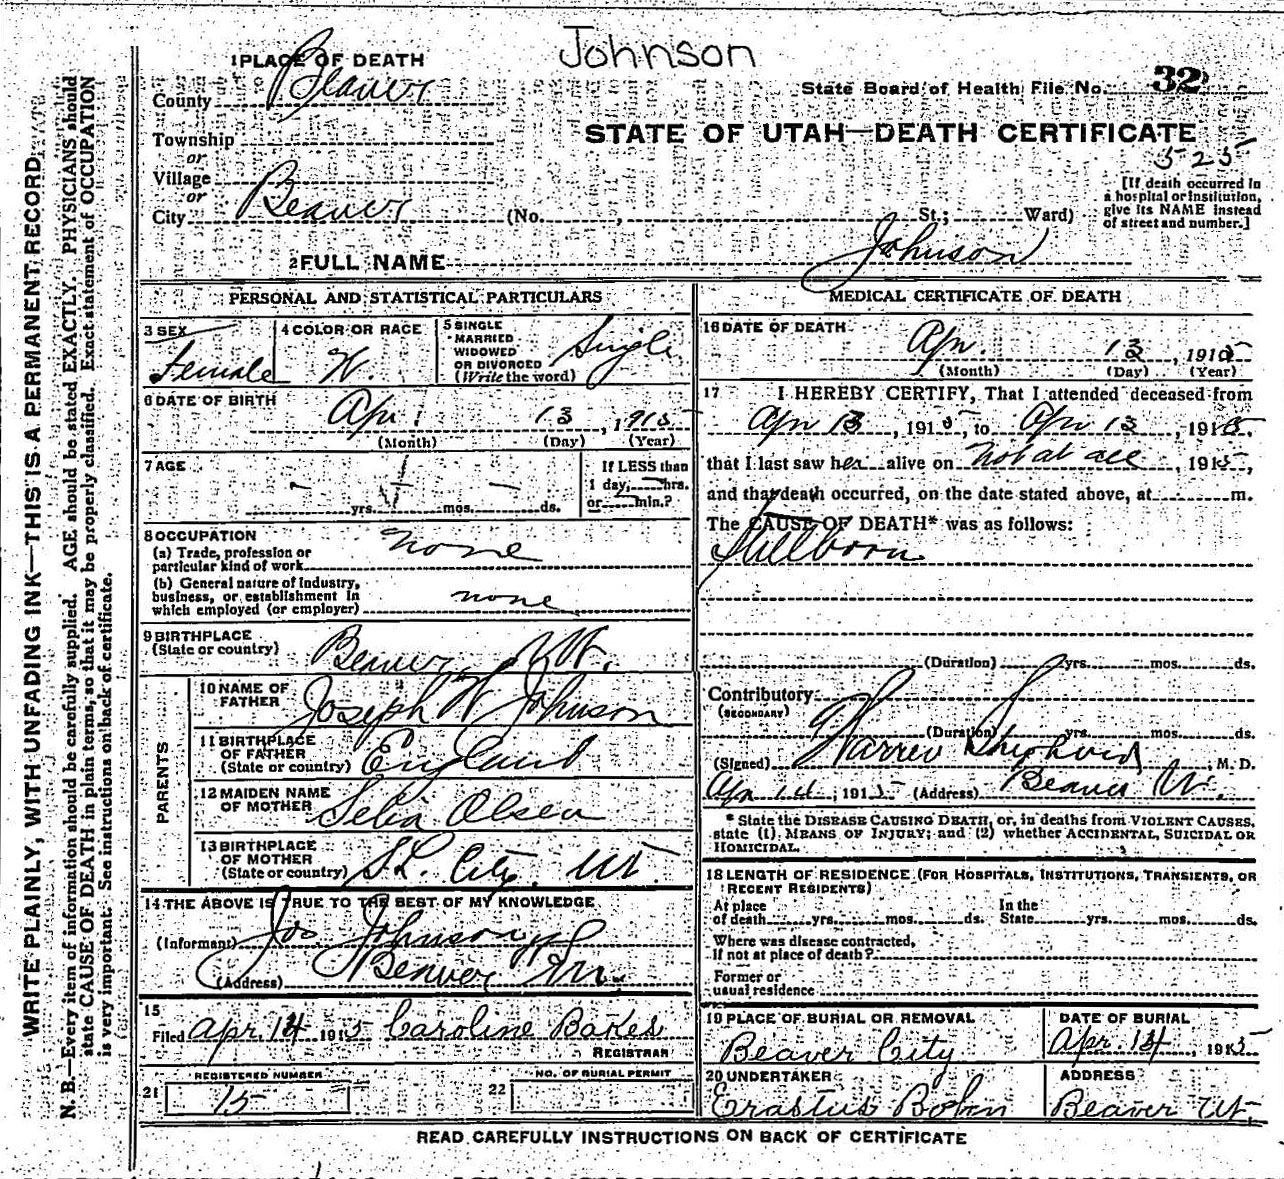 Johnson
1 PLACE OF DEATH
County Beaver
State Board of Health File No. 32
Township
or
STATE OF UTAH—DEATH CERTIFICATE
525
Village
or
City Beaver (No. , St.; Ward)
[If death occurred in
a hospital or institution,
give its NAME instead
of street and number.]
2 FULL NAME Johnson
PERSONAL AND STATISTICAL PARTICULARS
3 SEX
Female
4 COLOR OR RACE
W.
5 SINGLE
MARRIED
WIDOWED
OR DIVORCED
(Write the word)
Single
6 DATE OF BIRTH
Apr. 13, 1915
(Month) (Day) (Year)
7 AGE
yrs. mos. ds.
If LESS than
1 day, hrs.
or min.?
8 OCCUPATION
(a) Trade, profession or
particular kind of work none
(b) General nature of industry,
business, or establishment in
which employed (or employer) none
9 BIRTHPLACE
(State or country) Beaver, Ut.
PARENTS
10 NAME OF
FATHER Joseph W Johnson
11 BIRTHPLACE
OF FATHER
(State or country) England
12 MAIDEN NAME
OF MOTHER Olsen
13 BIRTHPLACE
OF MOTHER
(State or country) S.L. City, Ut.
14 THE ABOVE IS TRUE TO THE BEST OF MY KNOWLEDGE
(Informant) Jos Johnson
(Address) Beaver
15
Filed Apr. 14 1915 Caroline Bakes
REGISTRAR
REGISTERED NUMBER
21 15
NO. OF BURIAL PERMIT
22
MEDICAL CERTIFICATE OF DEATH
16 DATE OF DEATH
Apr. 13, 1915
(Month) (Day) (Year)
17 I HEREBY CERTIFY, That I attended deceased from
Apr 13, 1915, to Apr 13, 1915,
that I last saw her alive on Not at all, 1915,
and that death occurred, on the date stated above, at m.
The CAUSE OF DEATH* was as follows:
Stillborn
(Duration) yrs. mos. ds.
Contributory
(SECONDARY)
(Duration) yrs. mos. ds.
(Signed) Warren Shepherd, M. D.
Apr 14, 1915 (Address) Beaver Ut.
* State the DISEASE CAUSING DEATH, or, in deaths from VIOLENT CAUSES,
state (1) MEANS OF INJURY; and (2) whether ACCIDENTAL, SUICIDAL OR
HOMICIDAL.
18 LENGTH OF RESIDENCE (FOR HOSPITALS, INSTITUTIONS, TRANSIENTS, OR
RECENT RESIDENTS)
At place
of death yrs. mos. ds.
In the
State yrs. mos. ds.
Where was disease contracted,
If not at place of death?
Former or
usual residence
19 PLACE OF BURIAL OR REMOVAL
Beaver City
DATE OF BURIAL
Apr. 14, 1915
20 UNDERTAKER
Erastus
ADDRESS
Beaver Ut.
READ CAREFULLY INSTRUCTIONS ON BACK OF CERTIFICATE
WRITE PLAINLY, WITH UNFADING INK—THIS IS A PERMANENT RECORD
N. B.—Every item of information should be carefully supplied. AGE should be stated EXACTLY. PHYSICIANS should
state CAUSE OF DEATH in plain terms, so that it may be properly classified. Exact statement of OCCUPATION
is very important. See instructions on back of certificate.